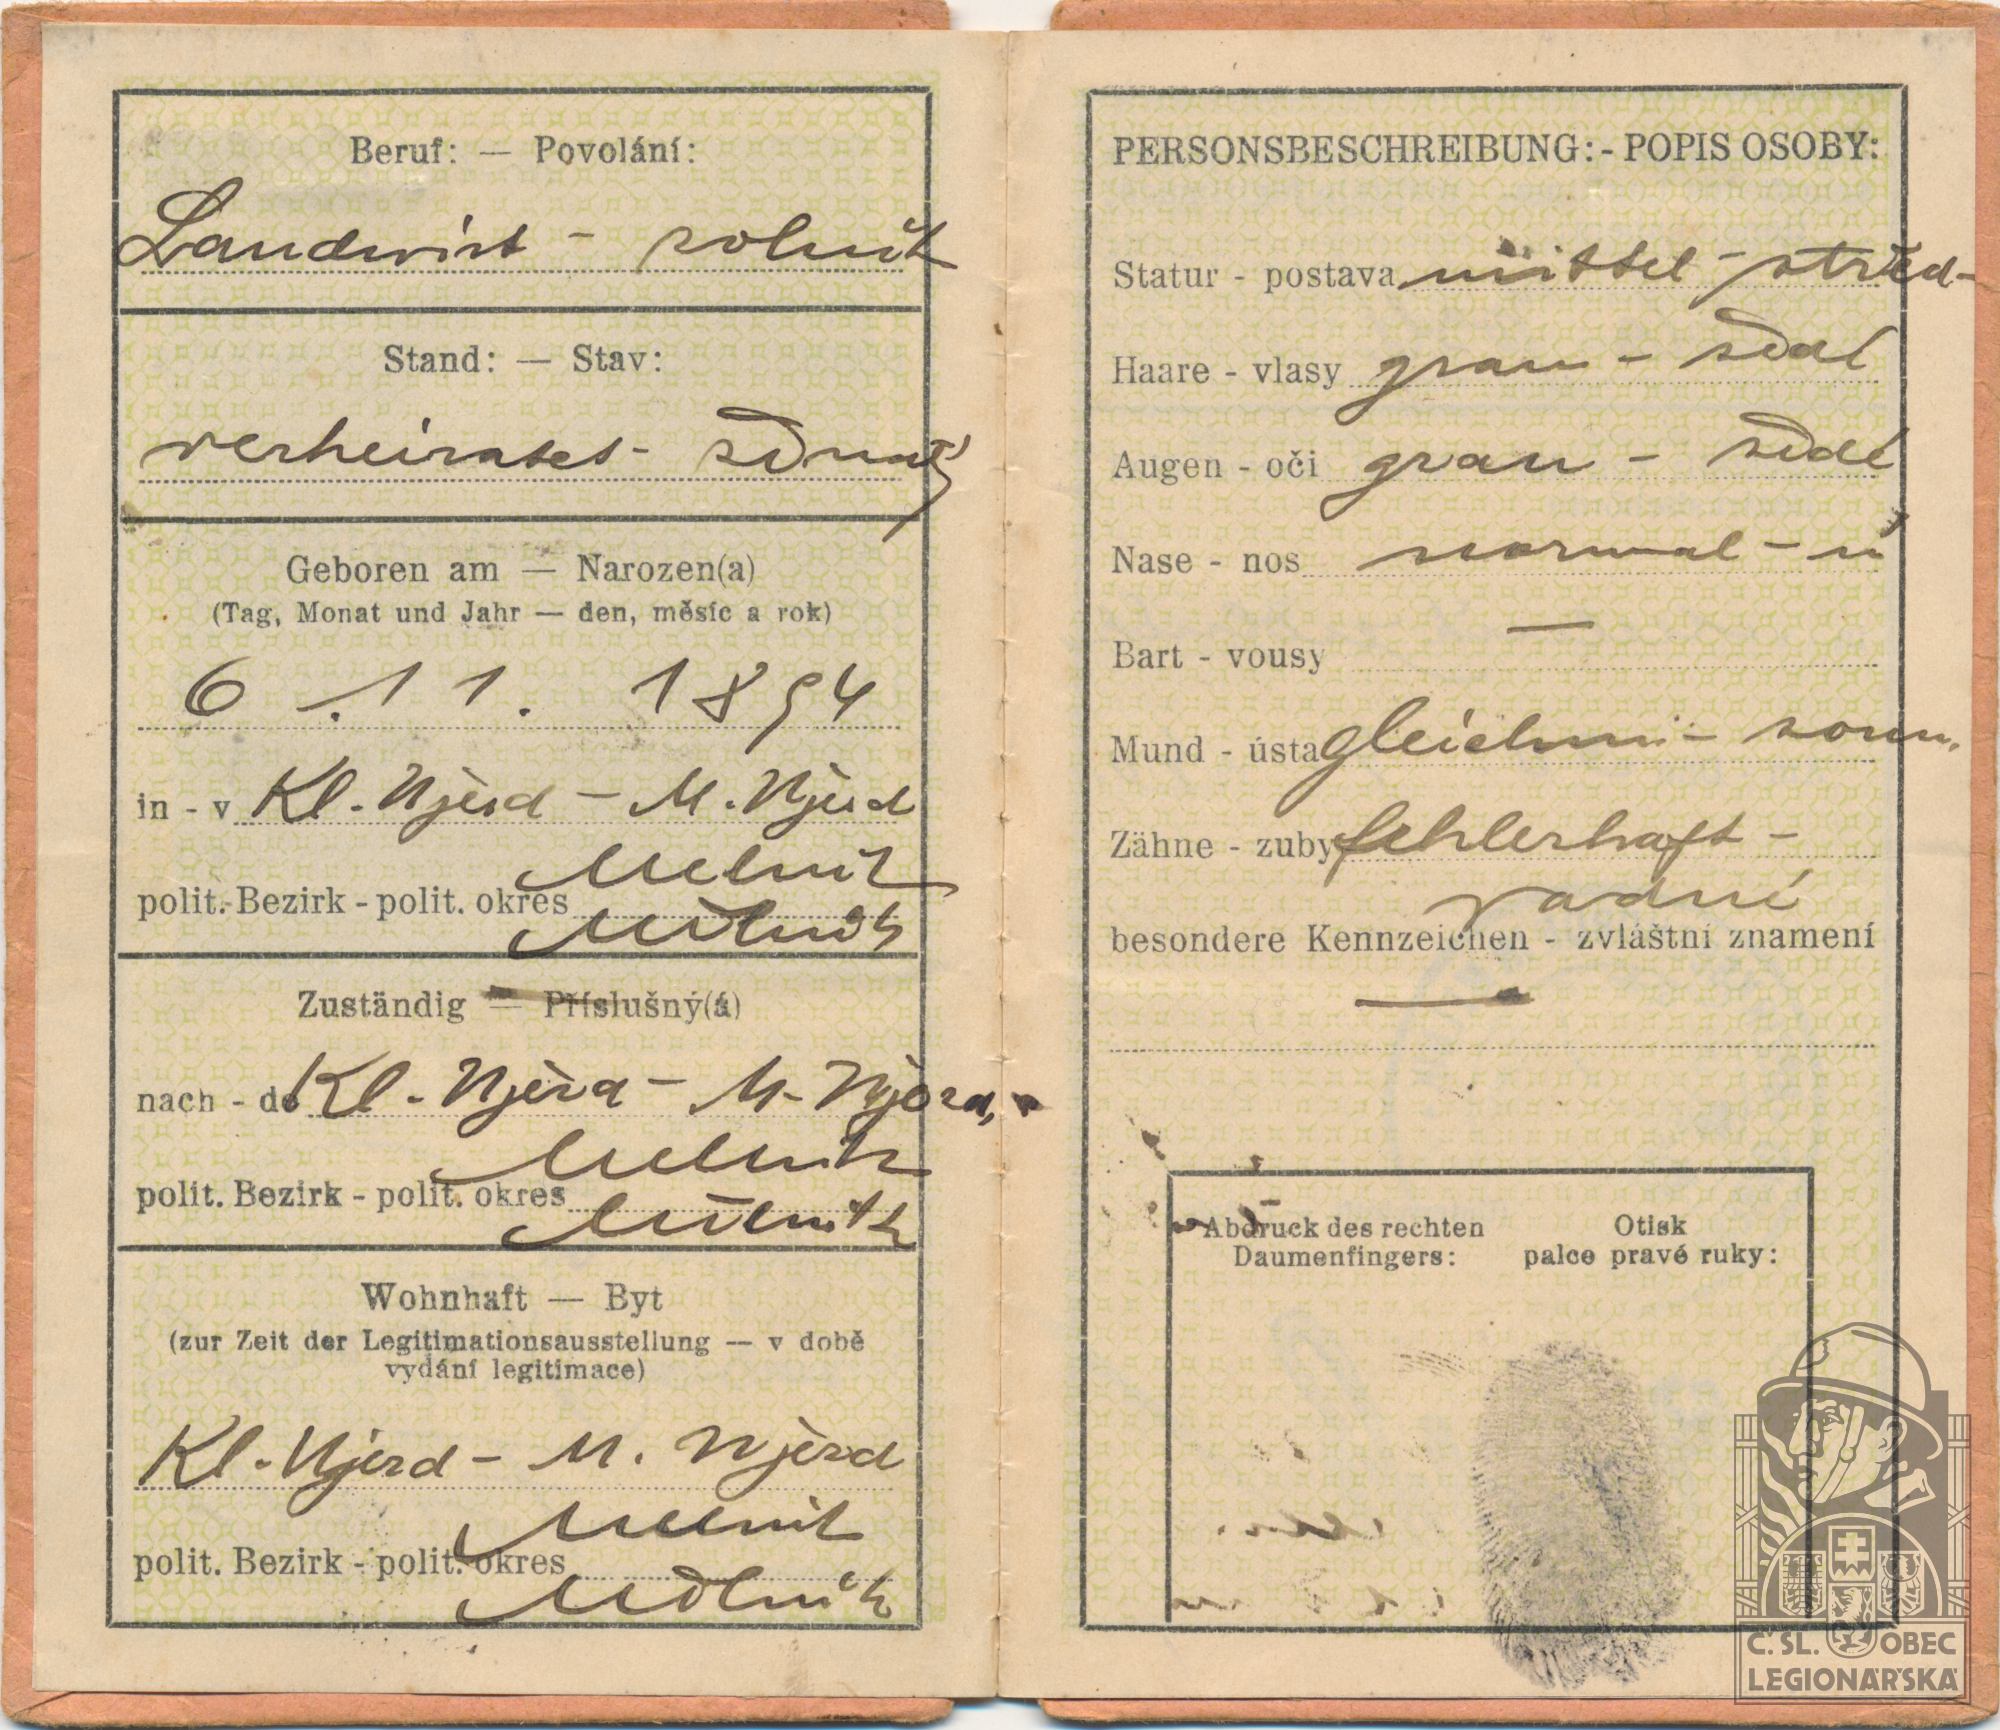 Beruf: — Povolání:
Landwirt - rolník
Stand: — Stav:
verheiratet - ženatý
Geboren am — Narozen(a)
(Tag, Monat und Jahr — den, měsíc a rok)
6. 11. 1894
in - v Kl.-Njezd - M. Njezd
Melnik
polit. Bezirk - polit. okres
Mělník
Zuständig — Příslušný(á)
nach - do Kl.-Njezd - M. Njezd,
Melnik
polit. Bezirk - polit. okres
Mělník
Wohnhaft — Byt
(zur Zeit der Legitimationsausstellung — v době
vydání legitimace)
Kl.-Njezd - M. Njezd
Melnik
polit. Bezirk - polit. okres
Mělník
PERSONSBESCHREIBUNG: - POPIS OSOBY:
Statur - postava mittel - střed-
Haare - vlasy grau - šedé
Augen - oči grau - šedé
Nase - nos normal -
Bart - vousy —
Mund - ústa gleichm - soum.
Zähne - zuby fehlerhaft -
vadné
besondere Kennzeichen - zvláštní znamení
—
Abdruck des rechten Daumenfingers:
Otisk palce pravé ruky:
Č. SL. OBEC
LEGIONÁŘSKÁ